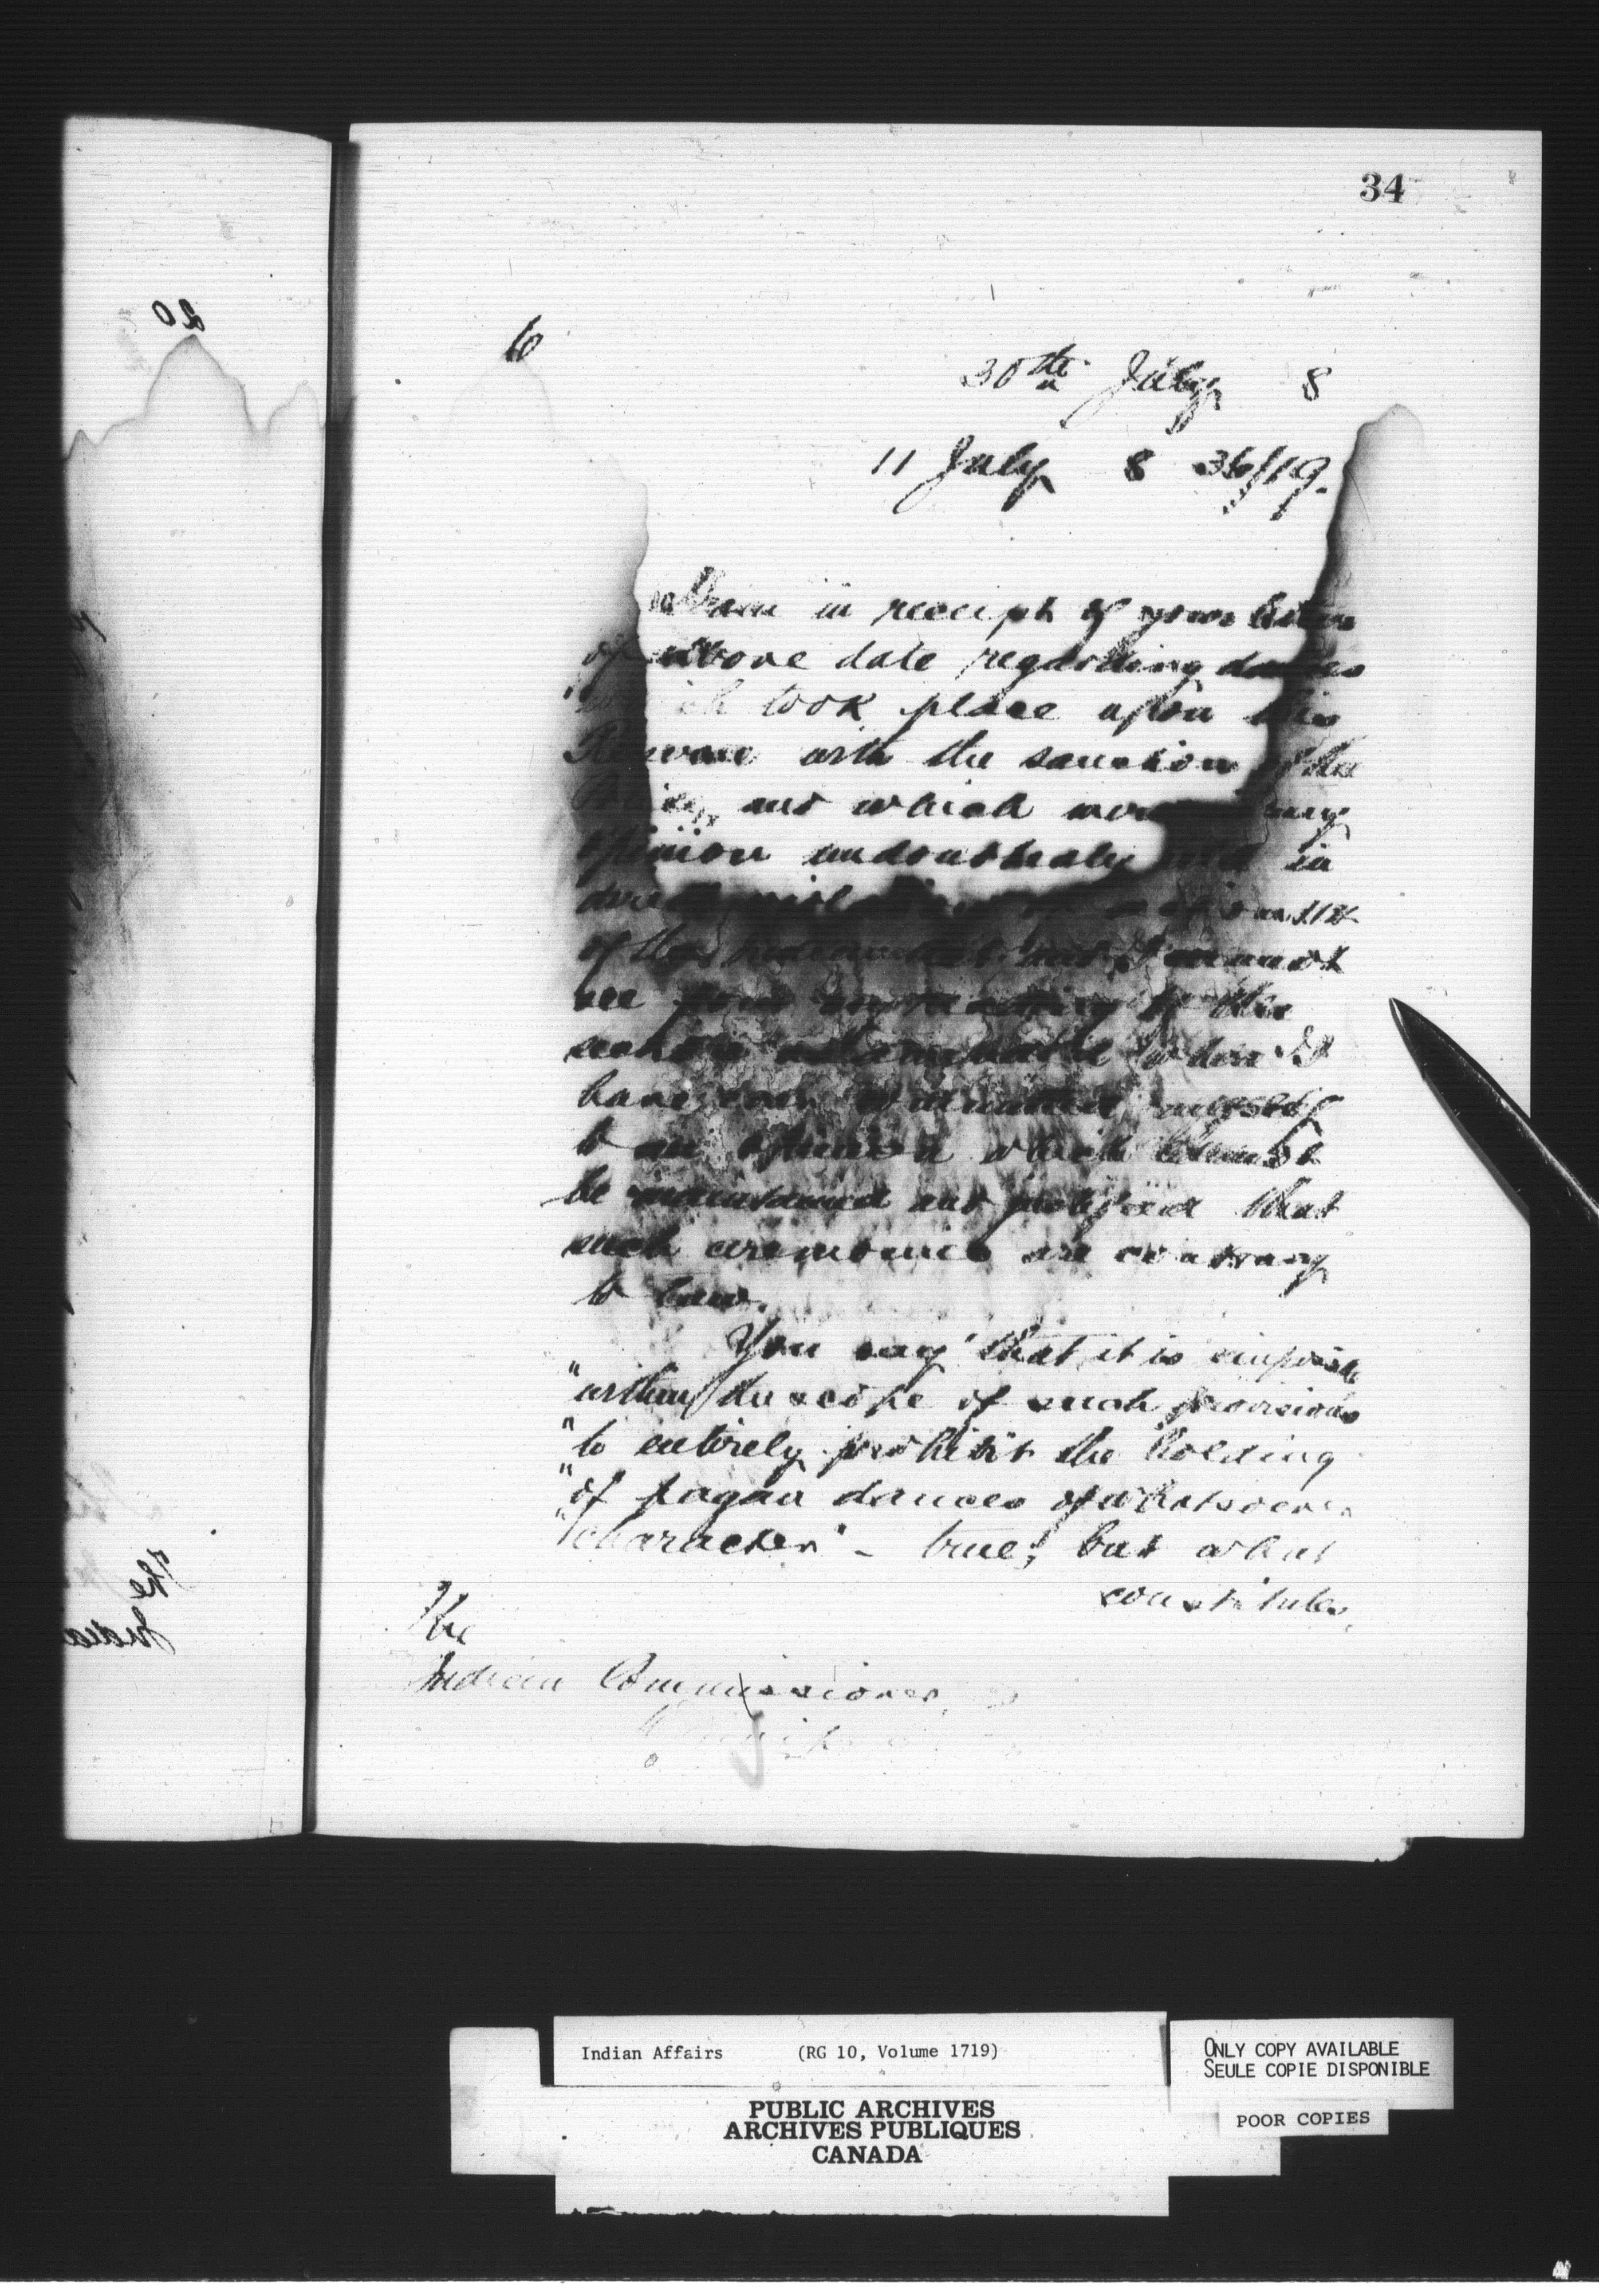 34
20
30th July 8
11 July 8 36/19.
I am in receipt of your letter
of above date regarding dances
which took place upon this
Reserve with the sanction of the
and which were my
opinion undoubtedly held in
direct 114
of the Indian Act and I cannot
see from my reading of the
section when I
have committed myself
to an opinion which cannot
be maintained and justified that
such ceremonies are contrary
to law.
You say "that it is
"within the scope of such provisions
"to entirely prohibit the holding
"of pagan dances of whatsoever
"character" - true; but what
constitutes
The
Indian Commissioner,
Winnipeg
The
India
Indian Affairs (RG 10, Volume 1719)
ONLY COPY AVAILABLE
SEULE COPIE DISPONIBLE
POOR COPIES
PUBLIC ARCHIVES
ARCHIVES PUBLIQUES
CANADA